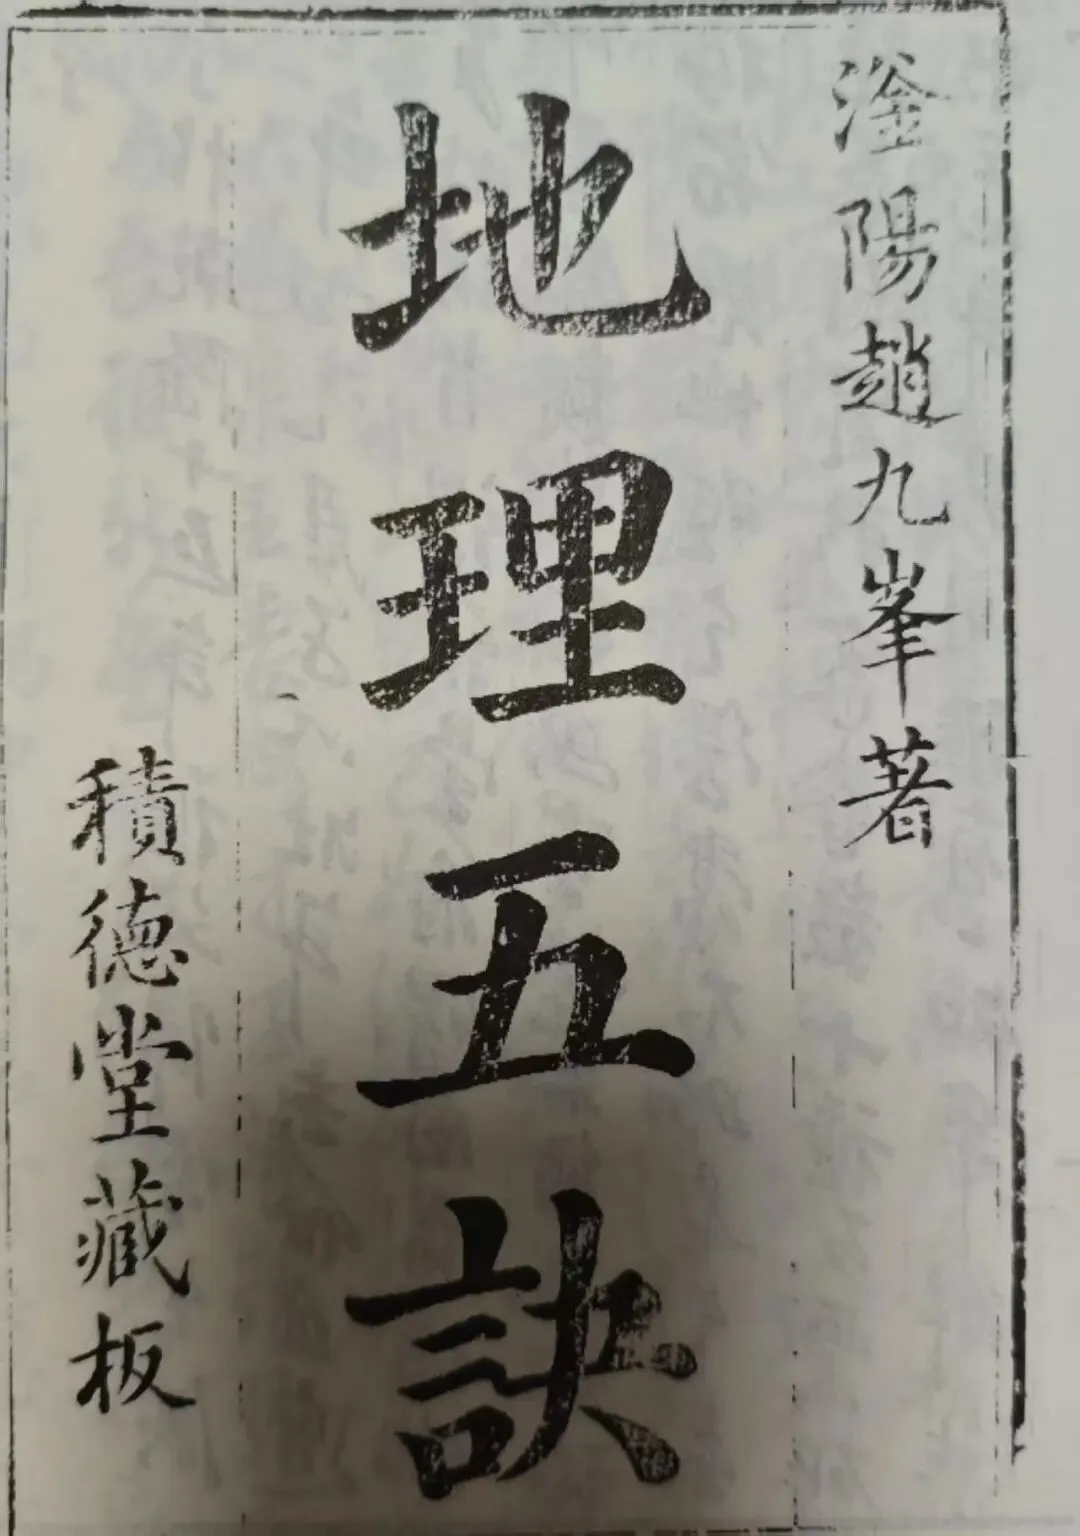 滏陽趙九峯著
地理五訣
積德堂藏板